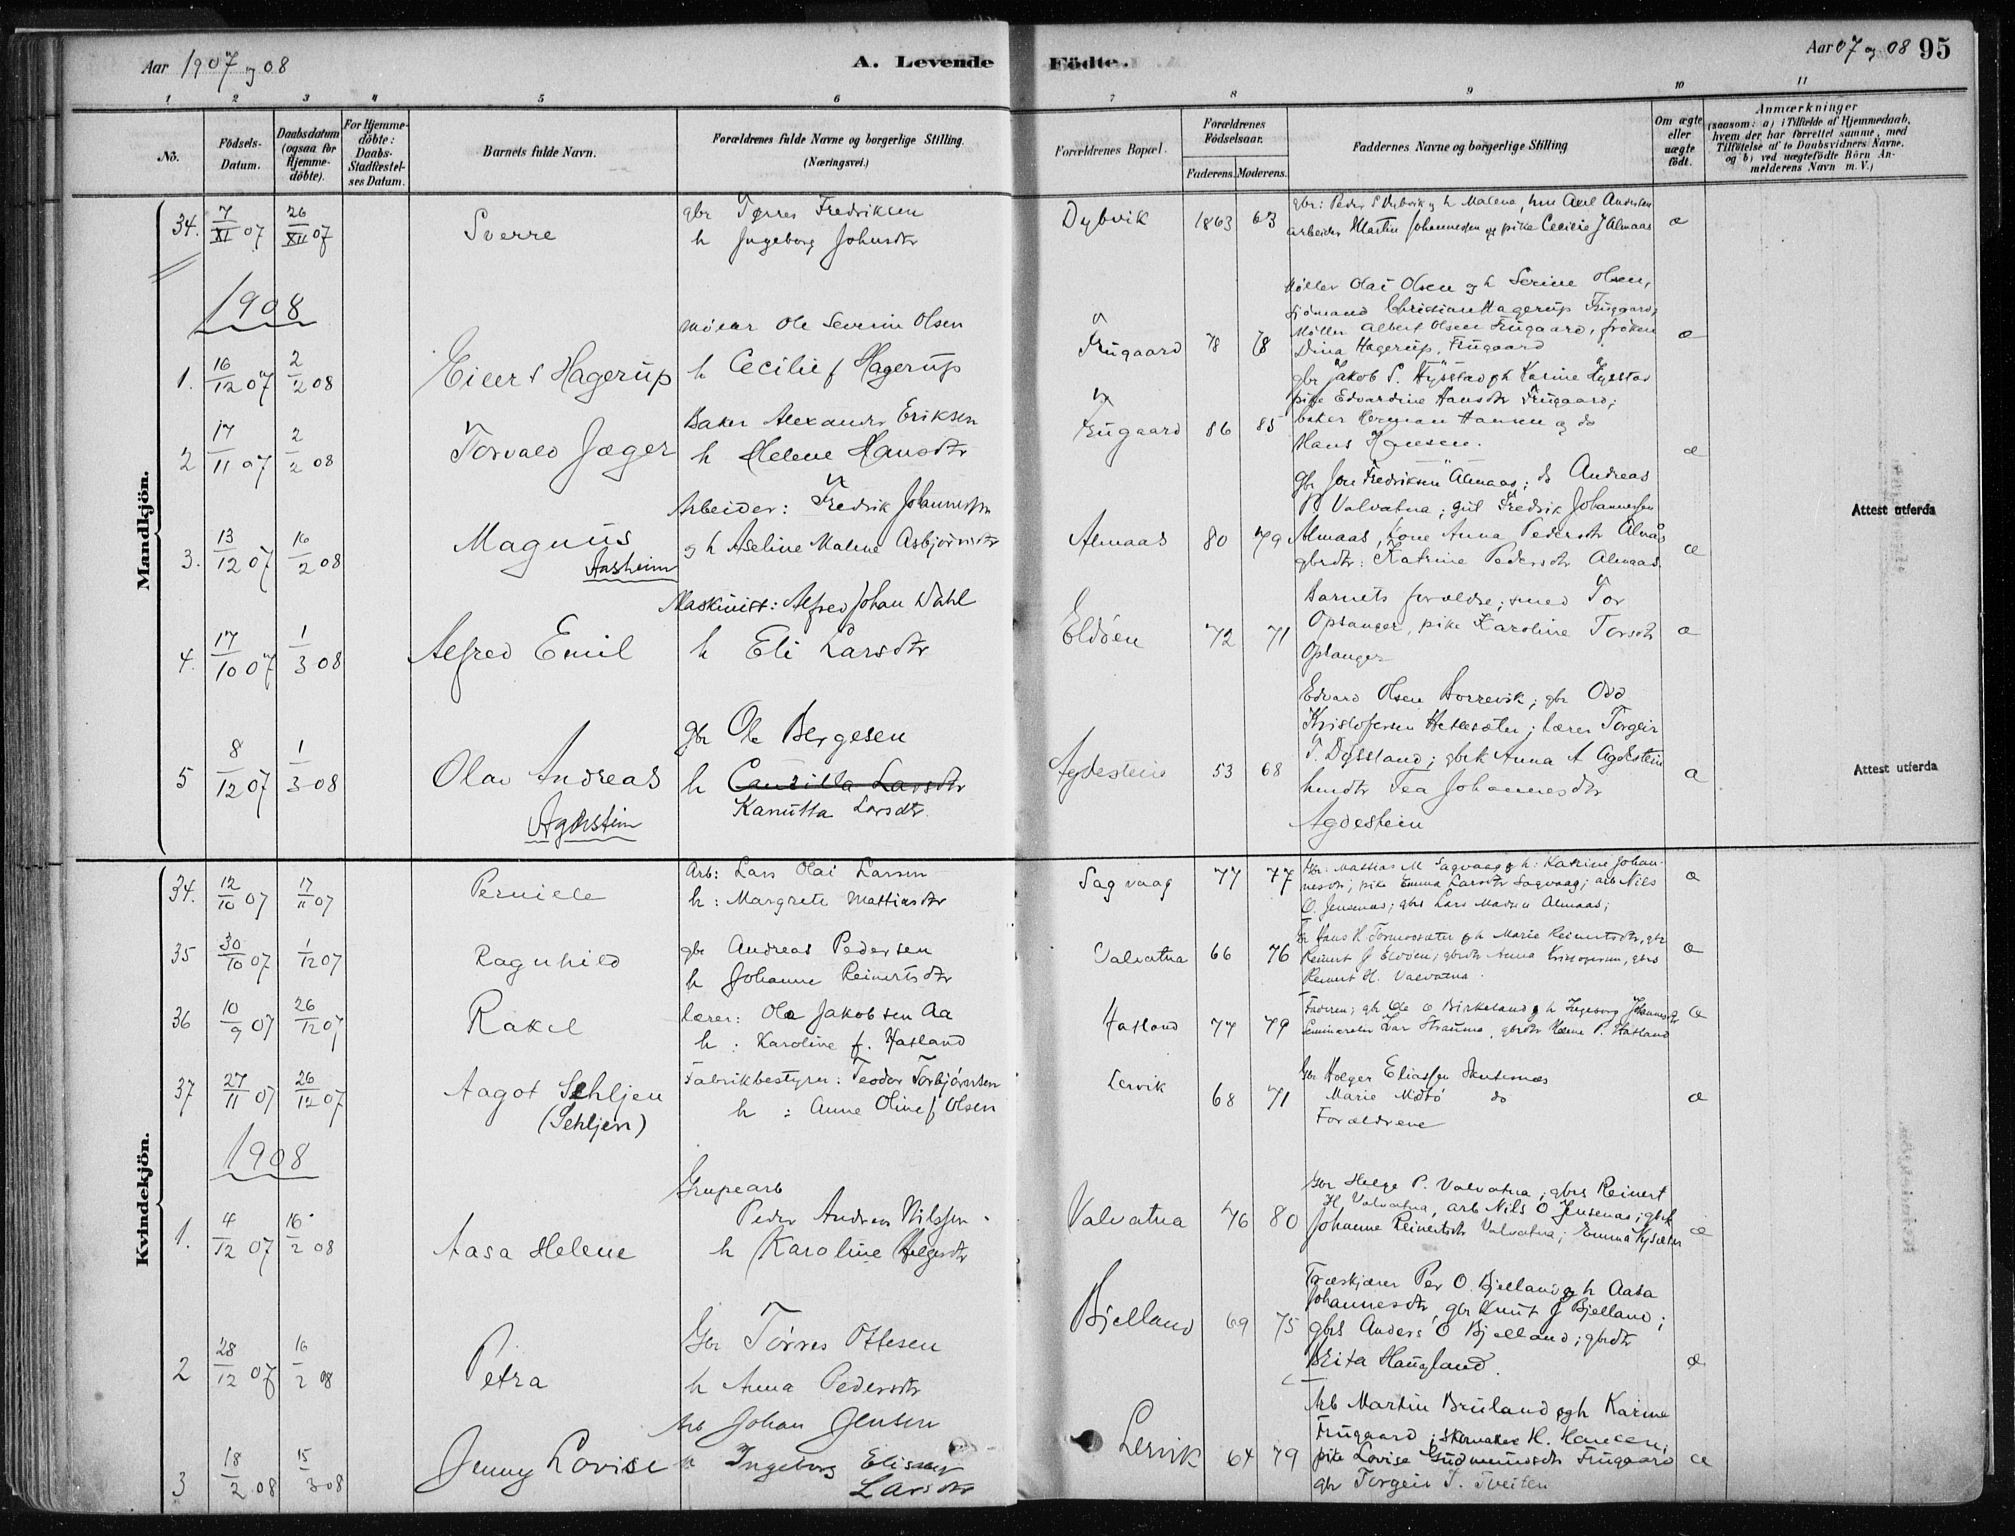 Aar 1907 og 08
A. Levende
Födte.
Aar 07 og 08 95
1 2 3 4 5 6 7 8 9 10 11
No.
Födsels-Datum.
Daabsdatum (ogsaa for Hjemme-döbte).
For Hjemme-döbte: Daabs-Stadfæstel-ses Datum.
Barnets fulde Navn.
Forældrenes fulde Navne og borgerlige Stilling. (Næringsvei.)
Forældrenes Bopæl.
Forældrenes Födselsaar.
Faderens. Moderens.
Faddernes Navne og borgerlige Stilling
Om ægte eller uægte födt.
Anmærkninger
(saasom: a) i Tilfælde af Hjemmedaab, hvem der har forrettet samme, med Tilföielse af to Daabsvidners Navne. og b) ved uægtefödte Börn An-melderens Navn m. V.)
Mandkjön.
34. 7/XI 07 26/XII 07 Sverre
gbr Tørres Fredriksen
h Ingeborg Johnsdtr
Dybvik 1863 63
gbr: Peder S Dybvik og h Malene, Axel Andersen
arbeider Martin Johannessen og pike Cecilie J Almaas æ
1908
1. 16/12 07 2/2 08 Eilert Hagerup
Ole Severin Olsen
h Cecilie f Hagerup
Frugaard 78 78
Møller Olai Olsen og h Serine Olsen,
sjömand Christian Hagerup Frugaard,
Møller Albert Olsen Frugaard, frøken
Dina Hagerup, Frugaard æ
2 17/11 07 2/2 08 Torvald Jæger
Baker Alexander Eriksen
h Helene Hansdtr
Frugaard 86 85
gbr Jakob P. Hystad og h Karine Hystad
pike Edvardine Hansdtr Frugaard;
baker Herman Hansen og do
Hans Hansen. æ
3. 13/12 07 16/2 08 Magnus
Aasheim
Arbeider: Fredrik Johannessen
og h Aseline Malene Asbjørnsdtr
Almaas 80 79
Gbr Jon Fredriksen Almaas; do Andreas
P Valvatna; Fredrik Johannessen
Almaas, kone Anna Pedersdtr Almås
gbrdtr: Katrine Pedersdtr Almaas. æ
Attest utferda
4. 17/10 07 1/3 08 Alfred Emil
Maskinist: Alfred Johan Dahl
h Eli Larsdtr
Eldøen 72 71
Barnets forældre; smed Tor
Opsanger, pike Karoline Torsdtr
Opsanger æ
5 8/12 07 1/3 08 Olav Andreas
Agdestein
gbr Ole Bergesen
h Camilla Larsdtr
Kanutta Larsdtr.
Agdestein 53 68
Edvard Olsen Borrevik; gbr Odd
Kristofersen Hetlesæter; lærer Torgeir
T. Døssland; gbrk Anna A Agdestein
hmdtr Tea Johannesdtr
Agdestein æ
Attest utferda
Kvindekjön.
34. 12/10 07 17/11 07 Pernille
Arb: Lars Olai Larsen
h: Margrete Mattiasdtr
Sagvaag 77 77
Gbr: Mattias M Sagvaag og h: Katrine Johan-
nesdtr; pike Emma Larsdtr Sagvaag; arb Nils
O. Jensenas; gbrs Lars Madsen Almaas; æ
35 30/10 07 1/12 07 Ragnhild
gbr Andreas Pedersen
h Johanne Reinertsdtr
Valvatna 66 76
Hans H. og h Marie Reinertsdtr, gbr
Reinert J Eldøen; gbrdtr Anna Kristofersen, gbrs
Reinert H. Valvatna. æ
36 10/9 07 26/12 07 Rakel
Lærer: Ola Jakobsen Aa
h: Karoline f. Hatland
Hatland 77 79
Faderen; gbr Ole O Birkeland og h Ingeborg Johannesdtr
Seminarelev Ivar Straume, gbrdtr P. Hatland æ
37 27/11 07 26/12 07 Aagot Sehljen
(Sehljen)
Fabrikbestyrer: Teodor Torbjørnsen
h: Anne Oline f Olsen
Lervik 68 71
Gbr Holger Eliassen Skutenæs
Marie do
Forældrene æ
1908
1. 4/12 07 16/2 08 Aasa Helene
Grupearb
Peder Andreas Nilssen
h Karoline Helgesdtr
Valvatna 76 80
Gbr Helge P. Valvatna, gbrs Reinert
H. Valvatna, arb Nils O Jensenas; gbrk
Johanne Reinertsdtr Valvatna; Emma Hysæter æ
2 28/12 07 16/2 08 Petra
Gbr Tørres Ottesen
h Anna Pedersdtr
Bjelland 69 75
Træskjærer Per O. Bjelland og h Aasa
Johannesdtr, gbr Knut J Bjelland;
gbrs Anders O Bjelland; gbrdtr
Brita Haugland. æ
3 18/2 08 15/3 08 Jenny Lovise
Arb Johan Jensen
h Ingeborg Elisabet
Larsdtr
Lervik 64 79
Arb Martin Bruland og h Karine
Frugaard; skomaker H. Hansen,
pike Lovise Gudmundsdtr Frugaard
gbr Torgeir T. Tveiten æ